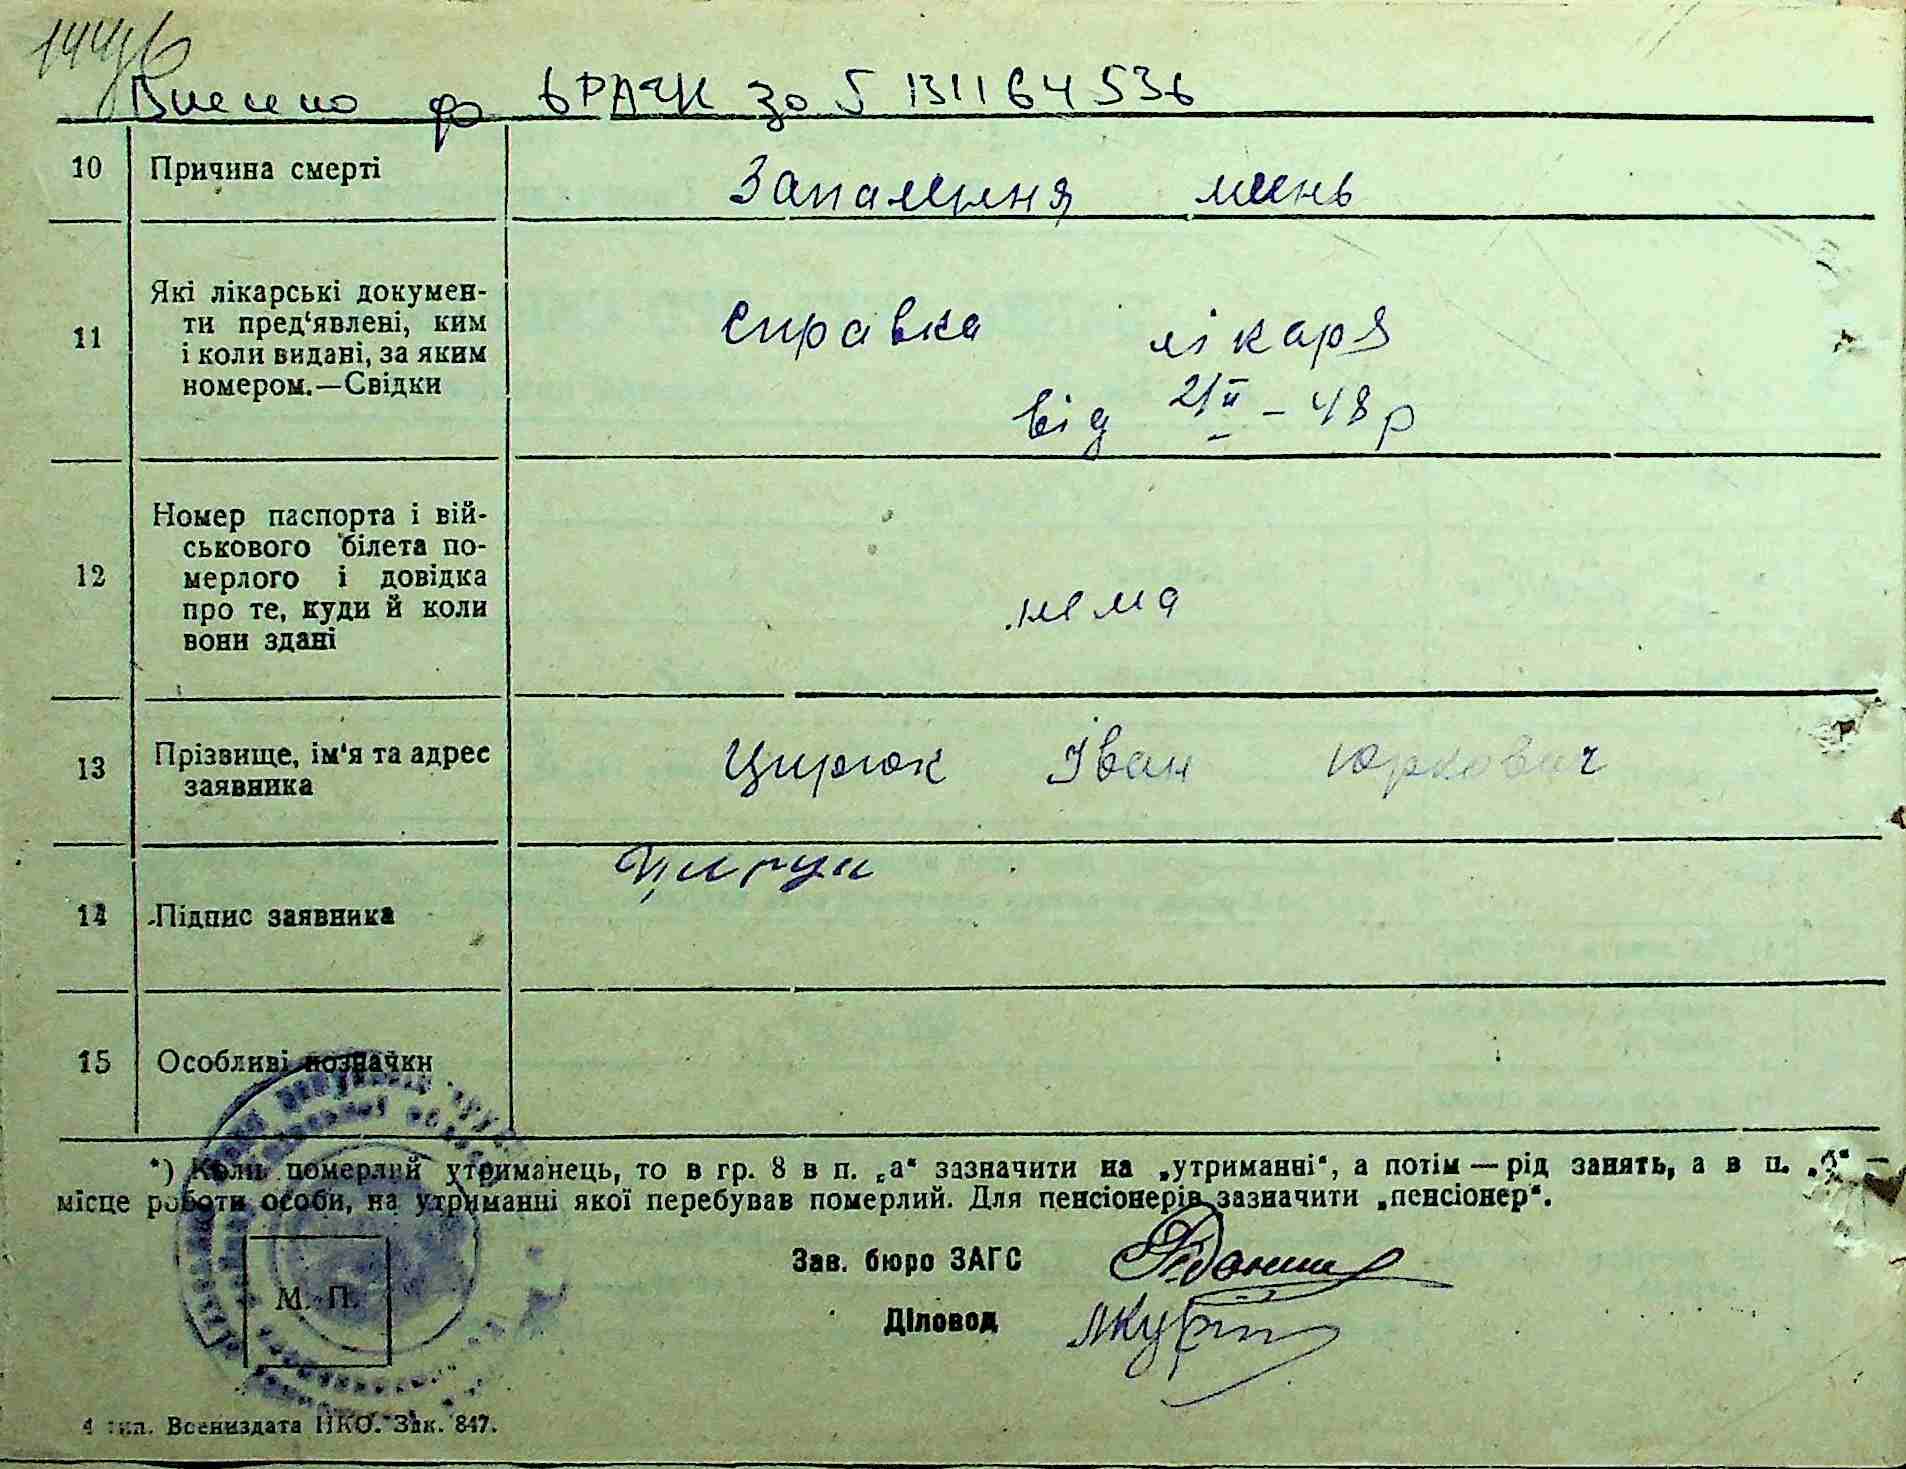 Внесено до ДРАЦС за № 13116453
10 Причина смерті Запалення легень
11 Які лікарські докумен-
ти пред'явлені, ким
і коли видані, за яким
номером.—Свідки
справка лікаря
від 21/II – 48 р
12 Номер паспорта і вій-
ськового білета по-
мерлого і довідка
про те, куди й коли
вони здані
нема
13 Прізвище, ім'я та адрес
заявника
Цирюк Іван Юркович
14 Підпис заявника
15 Особливі позначки
*) Коли померлий утриманець, то в гр. 8 в п. „а“ зазначити на „утриманні“, а потім — рід занять, а в п. „б“ —
місце роботи особи, на утриманні якої перебував померлий. Для пенсіонерів зазначити „пенсіонер“.
Зав. бюро ЗАГС
Діловод
М. П.
4 тип. Воениздата НКО. Зак. 847.